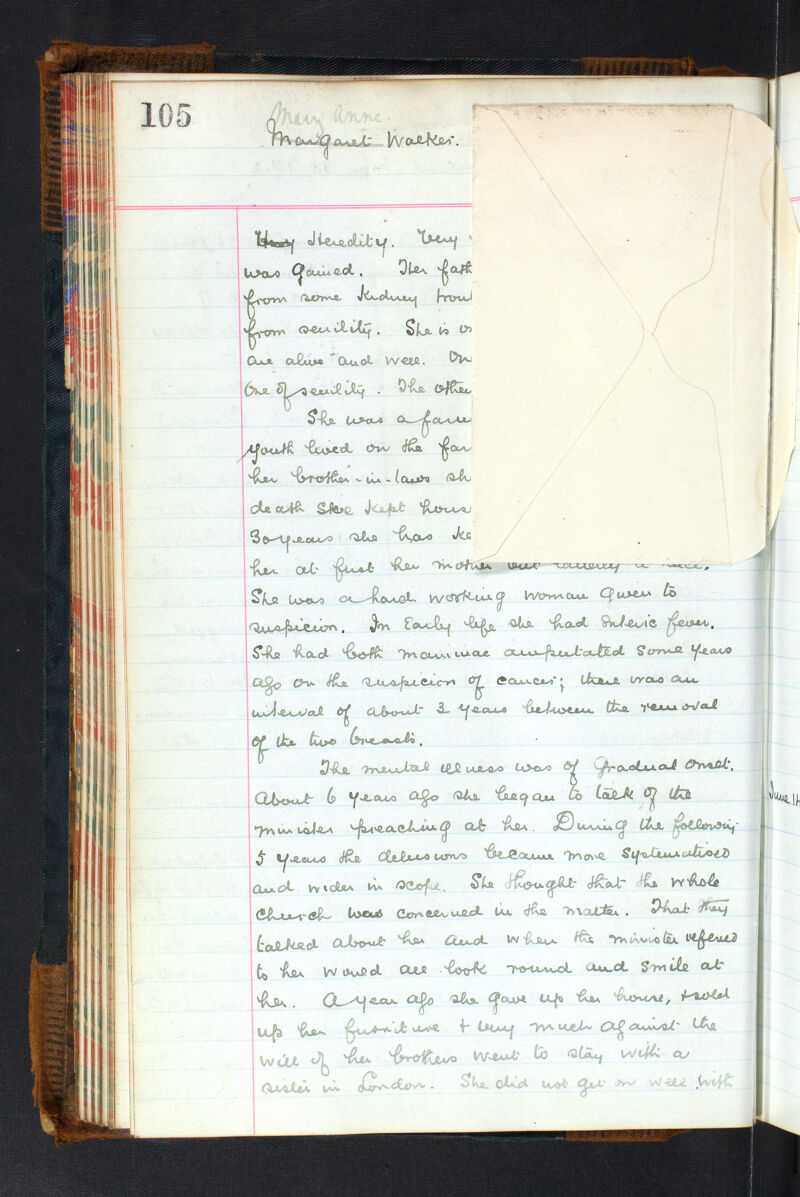 105
Mary Anne.
Margaret Walker.
Heredity. Very
was gained. Her fath
from some kidney troub
from senility. She is o
are alive and well. On
One of senility. The other
She was a farm
youth lived on the far
her brother-in-laws sh
death She kept hous
30 years she has ke
her at first her mother but latterly a niece.
She was a hard working woman given to
suspicion. In Early life she had Enteric fever.
She had both mammae amputated some years
ago on the suspicion of cancer; there was an
interval of about 3 years between the removal
of the two breasts.
The mental illness was of gradual onset.
About 6 years ago she began to talk of the
minister preaching at her. During the following
5 years the delusions became more systematised
and wider in scope. She thought that the whole
church was concerned in the matter. That they
talked about her and when the minister referred
to her would all look round and smile at
her. A year ago she gave up her house, + sold
up her furniture + very much against the
will of her brothers went to stay with a
sister in London. She did not get on well with
June 14